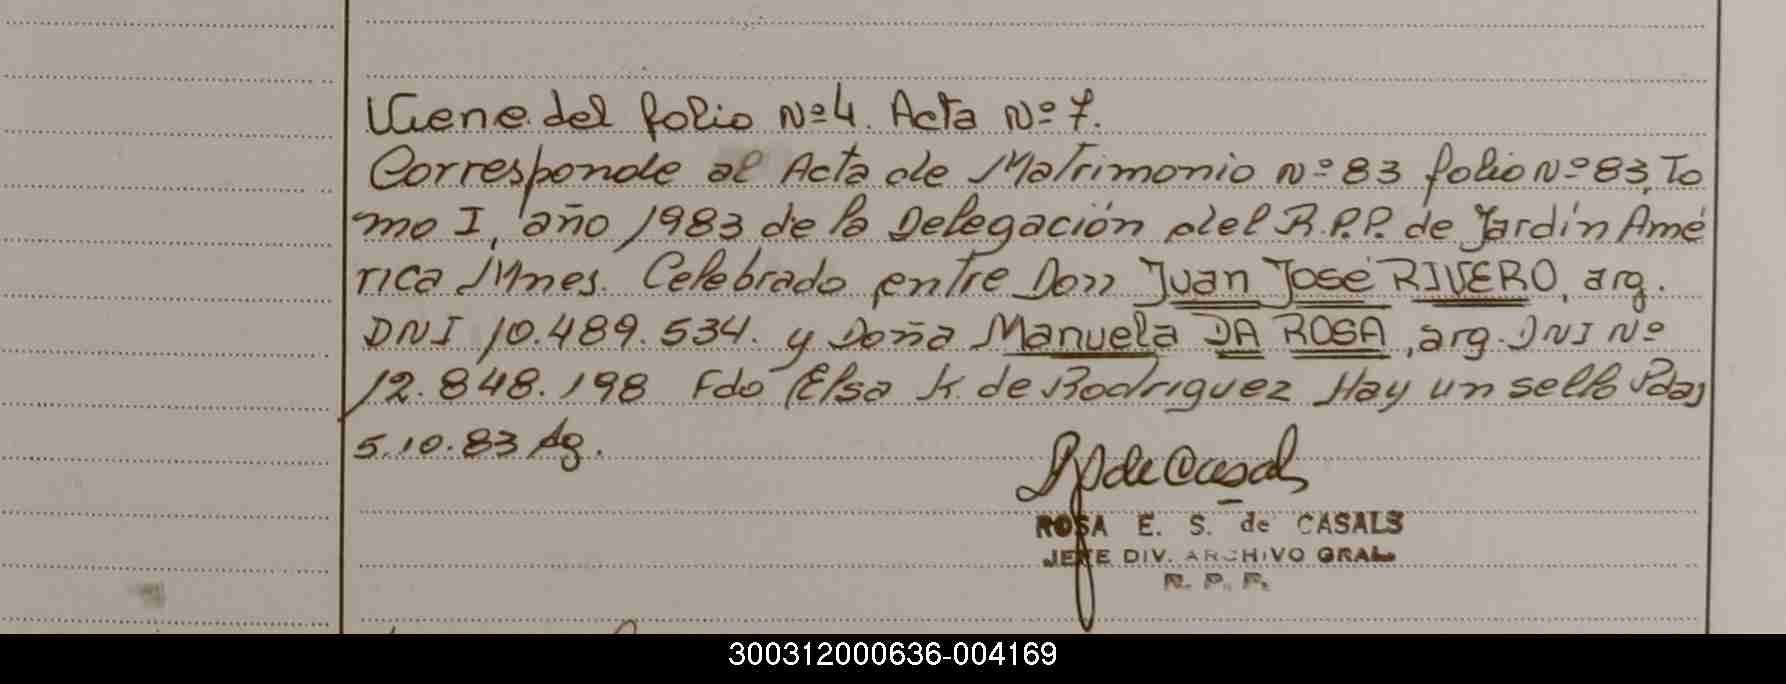 Viene del folio Nº 4. Acta Nº 7.
Corresponde al Acta de Matrimonio Nº 83 folio Nº 83, To
mo I, año 1983 de la Delegación del R.P.P. de Jardín Amé
rica Mnes. Celebrado entre Don Juan José RIVERO, arg.
DNI 10.489.534. y Doña Manuela DA ROSA, arg. DNI Nº
12.848.198 Fdo Elsa K. de Rodriguez Hay un sello Pdas
5.10.83 Ag.
de Casals
ROSA E. S. de CASALS
JEFE DIV. ARCHIVO GRAL.
R. P. P.
300312000636-004169